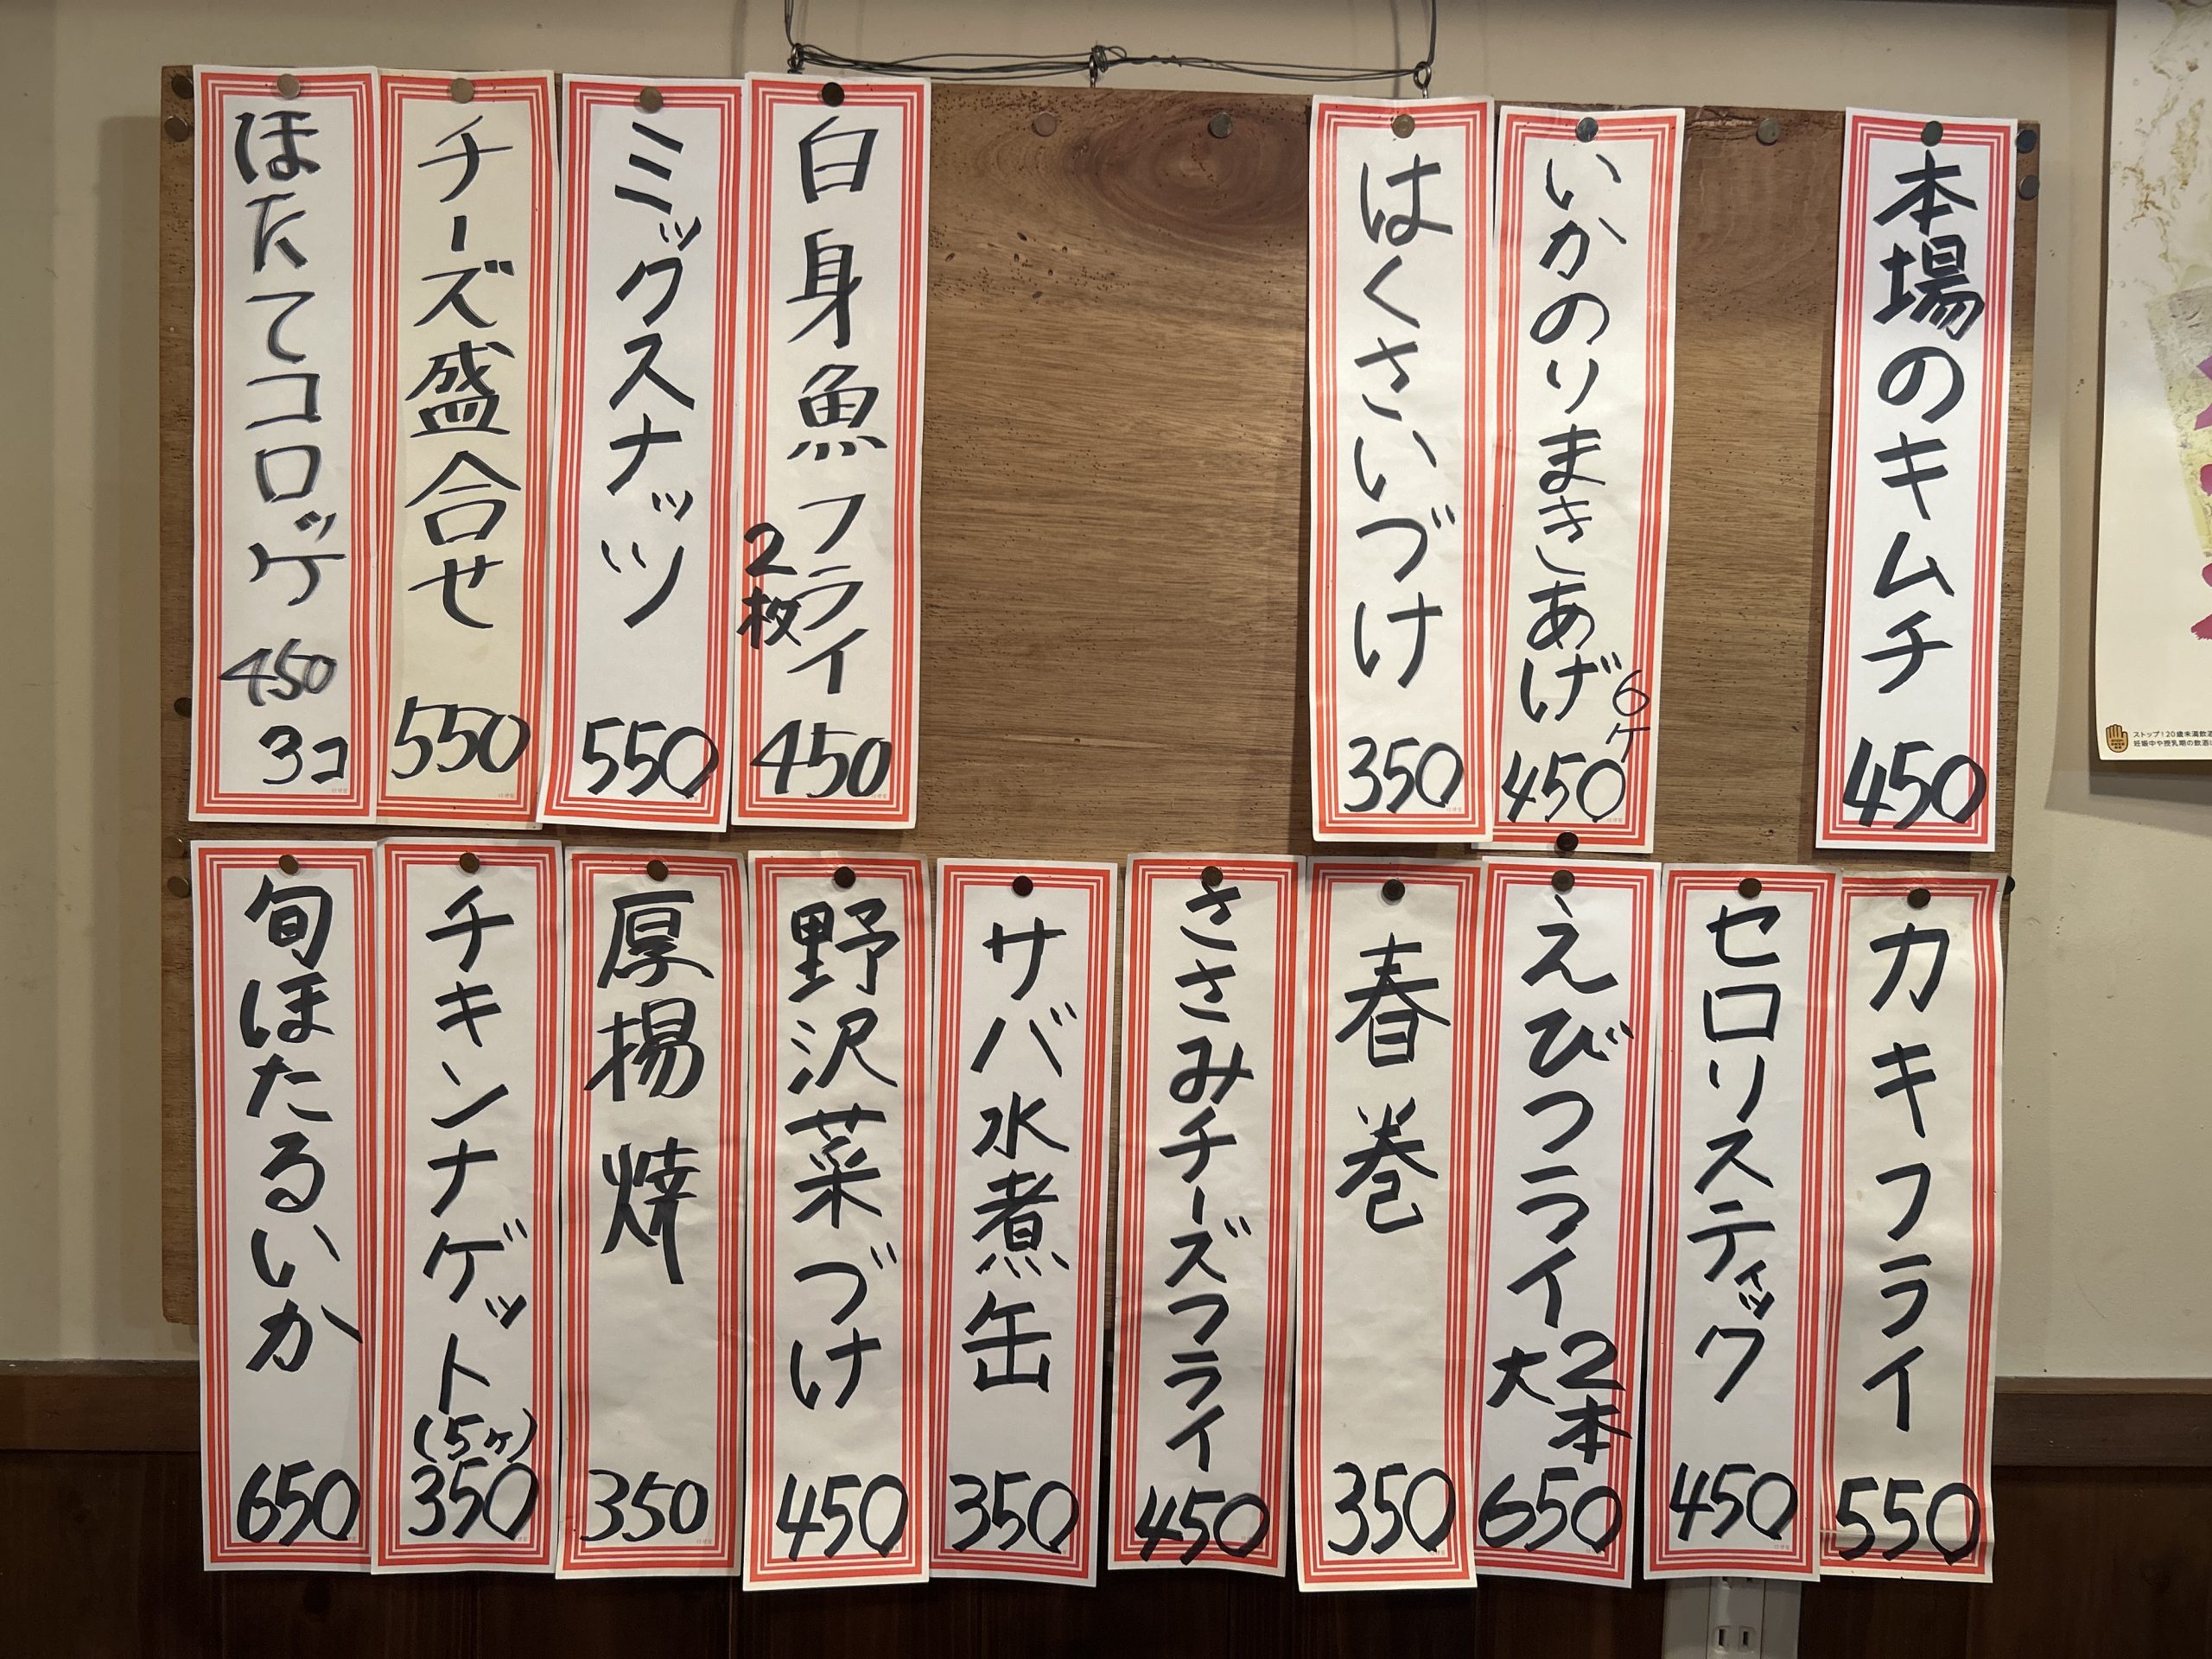 本場のキムチ 450
いかのりまきあげ 6ケ 450
はくさいづけ 350
白身魚フライ 2枚 450
ミックスナッツ 550
チーズ盛合せ 550
ほたてコロッケ 450 3コ
カキフライ 550
セロリスティック 450
えびフライ 大2本 650
春巻 350
ささみチーズフライ 450
サバ水煮缶 350
野沢菜づけ 450
厚揚焼 350
チキンナゲット (5ヶ) 350
旬ほたるいか 650
ストップ!20歳未満飲酒
妊娠中や授乳期の飲酒は